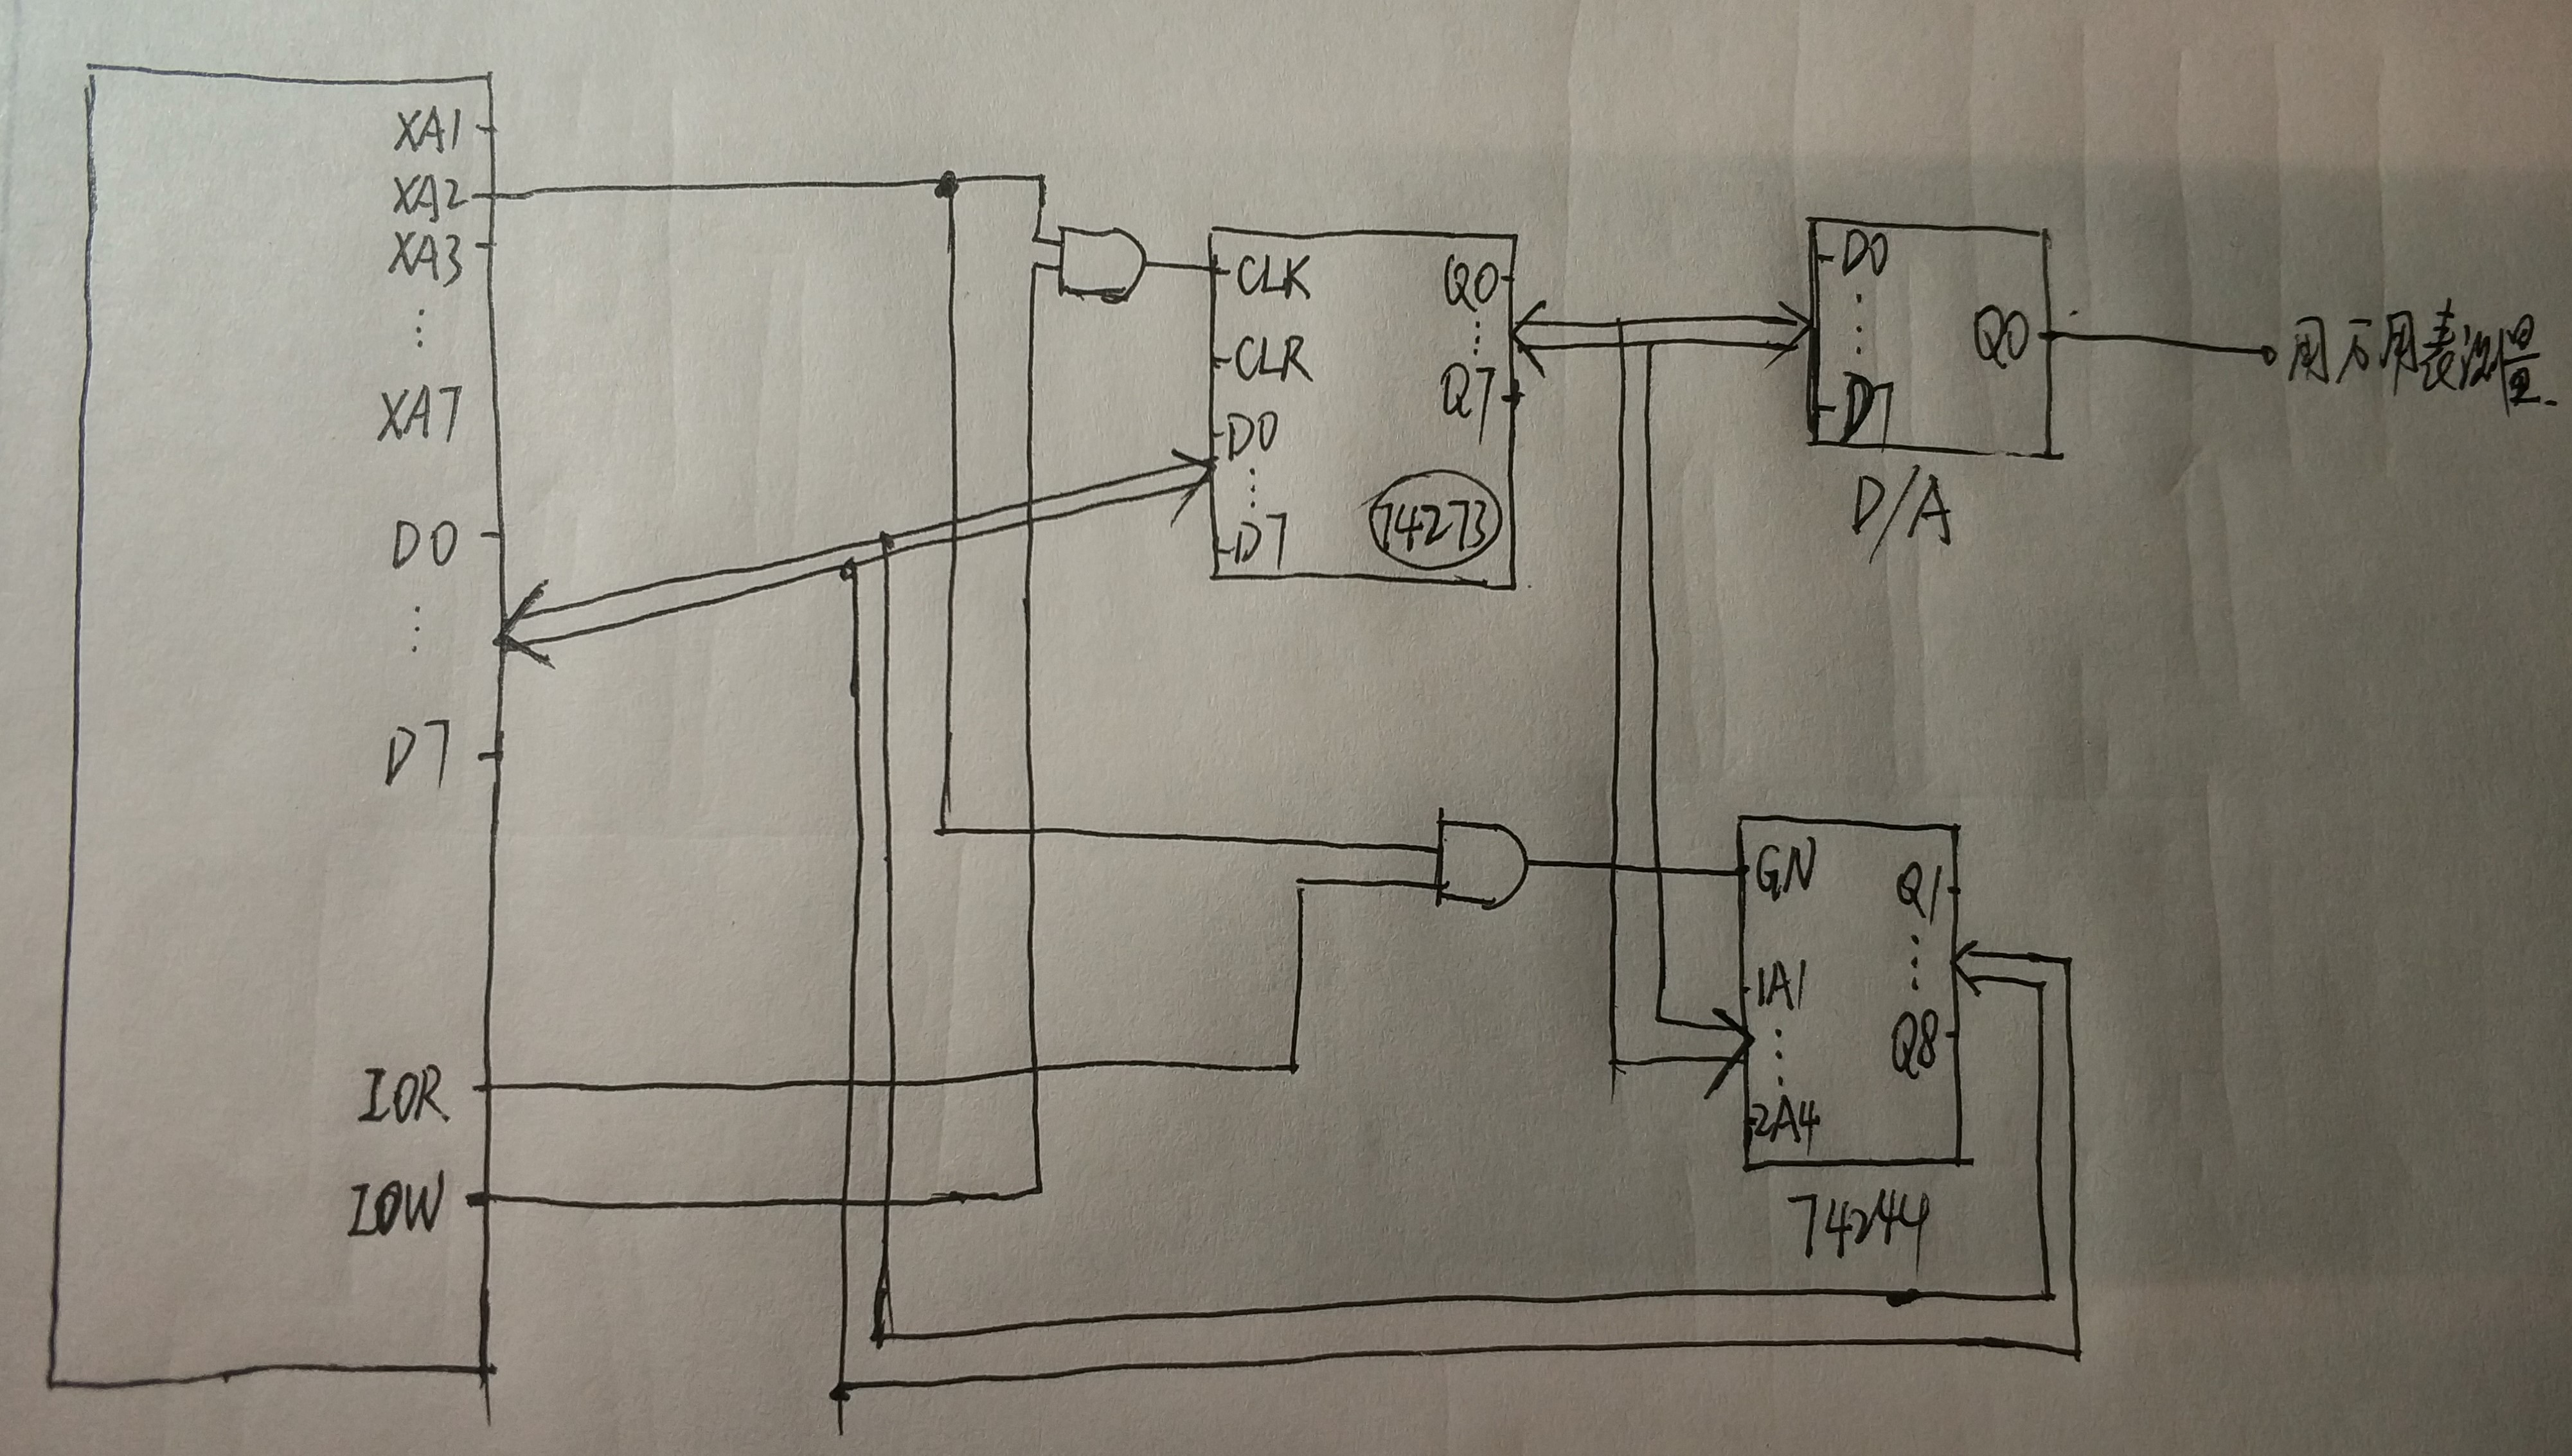 XA1
XA2
XA3
⋮
XA7
D0
⋮
D7
IOR
IOW
CLK
CLR
D0
⋮
D7
Q0
⋮
Q7
74273
D0
⋮
D7
Q0
D/A
用万用表测量.
GN
1A1
⋮
2A4
Q1
⋮
Q8
74244